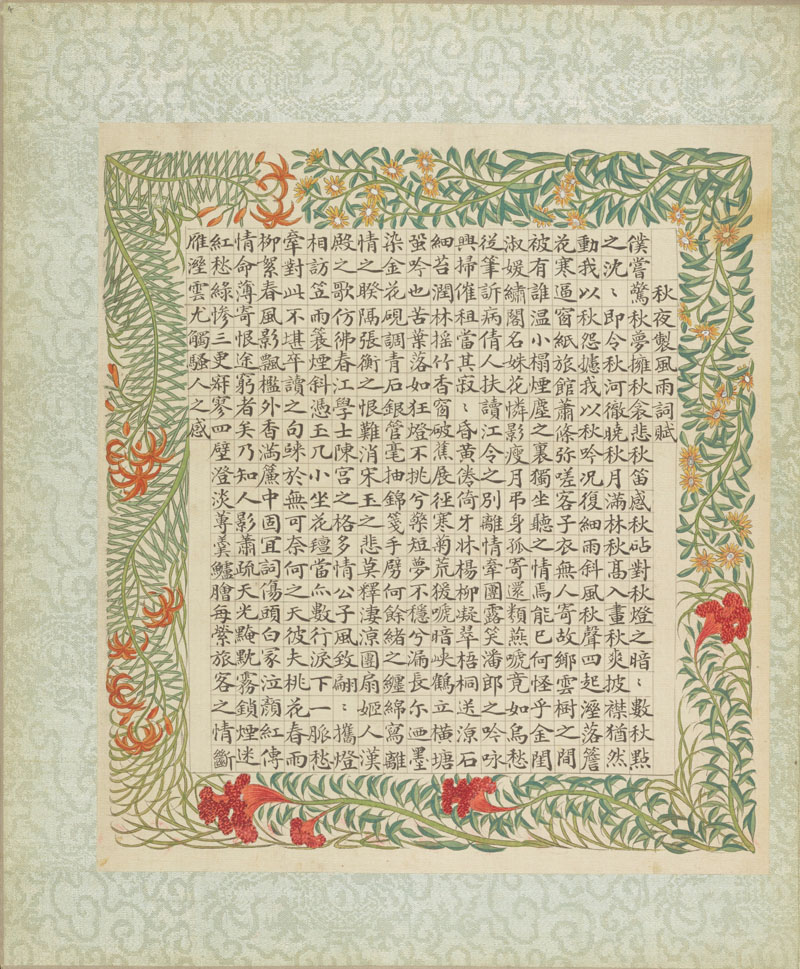 秋夜製風雨詞賦
僕嘗驚秋夢擁秋衾悲秋笛感秋砧對秋燈之暗、數秋點
之沈、即今秋河徹曉秋月滿林秋髙入畫秋爽披襟猶然
動我以秋怨我以秋吟况復細雨斜風秋聲四起溼落簷
花寒逼窗紙旅館蕭條弥嗟客子衣無人寄故鄉雲樹之間
被有誰温小榻煙塵之裏獨坐聽之情焉能已何怪乎金閨
淑媛繡閣名姝花憐影瘦月弔身孤寄還類燕唬竟如烏愁
従筆訴病倩人扶讀江令之別離情牽團露潘郎之吟咏
興掃催租當其寂、昏黄倦倚牙牀楊柳凝翠梧桐送涼石
細苔潤林搖竹香窗破蕉展径寒菊荒猨唬暗峽鶴立橫塘
蛩吟也苦葉落如狂燈不挑兮檠短夢不穩兮漏長尓迺墨
染金花硯調青石銀管毫抽錦箋手劈何餘緒之纏綿寫離
情之暌隔張衡之恨難消宋玉之悲莫釋淒涼團扇姬人漢
殿之歌仿彿春江學士陳宮之格多情公子風致翩、攜燈
相訪笠雨蓑煙斜憑玉几小坐花氊當亦數行淚下一脈愁
牽對此不堪卒讀之句於無可奈何之天彼夫桃花春雨
柳絮春風影飄檻外香滿簾中固宜詞傷頭白冢泣顏紅傳
情命薄寄恨途窮者矣乃知人影蕭疏天光黯黮霧鎖煙迷
紅愁綠慘三更寥四壁澄淡蓴羹鱸膾每縈旅客之情斷
雁溼雲尤觸騷人之感